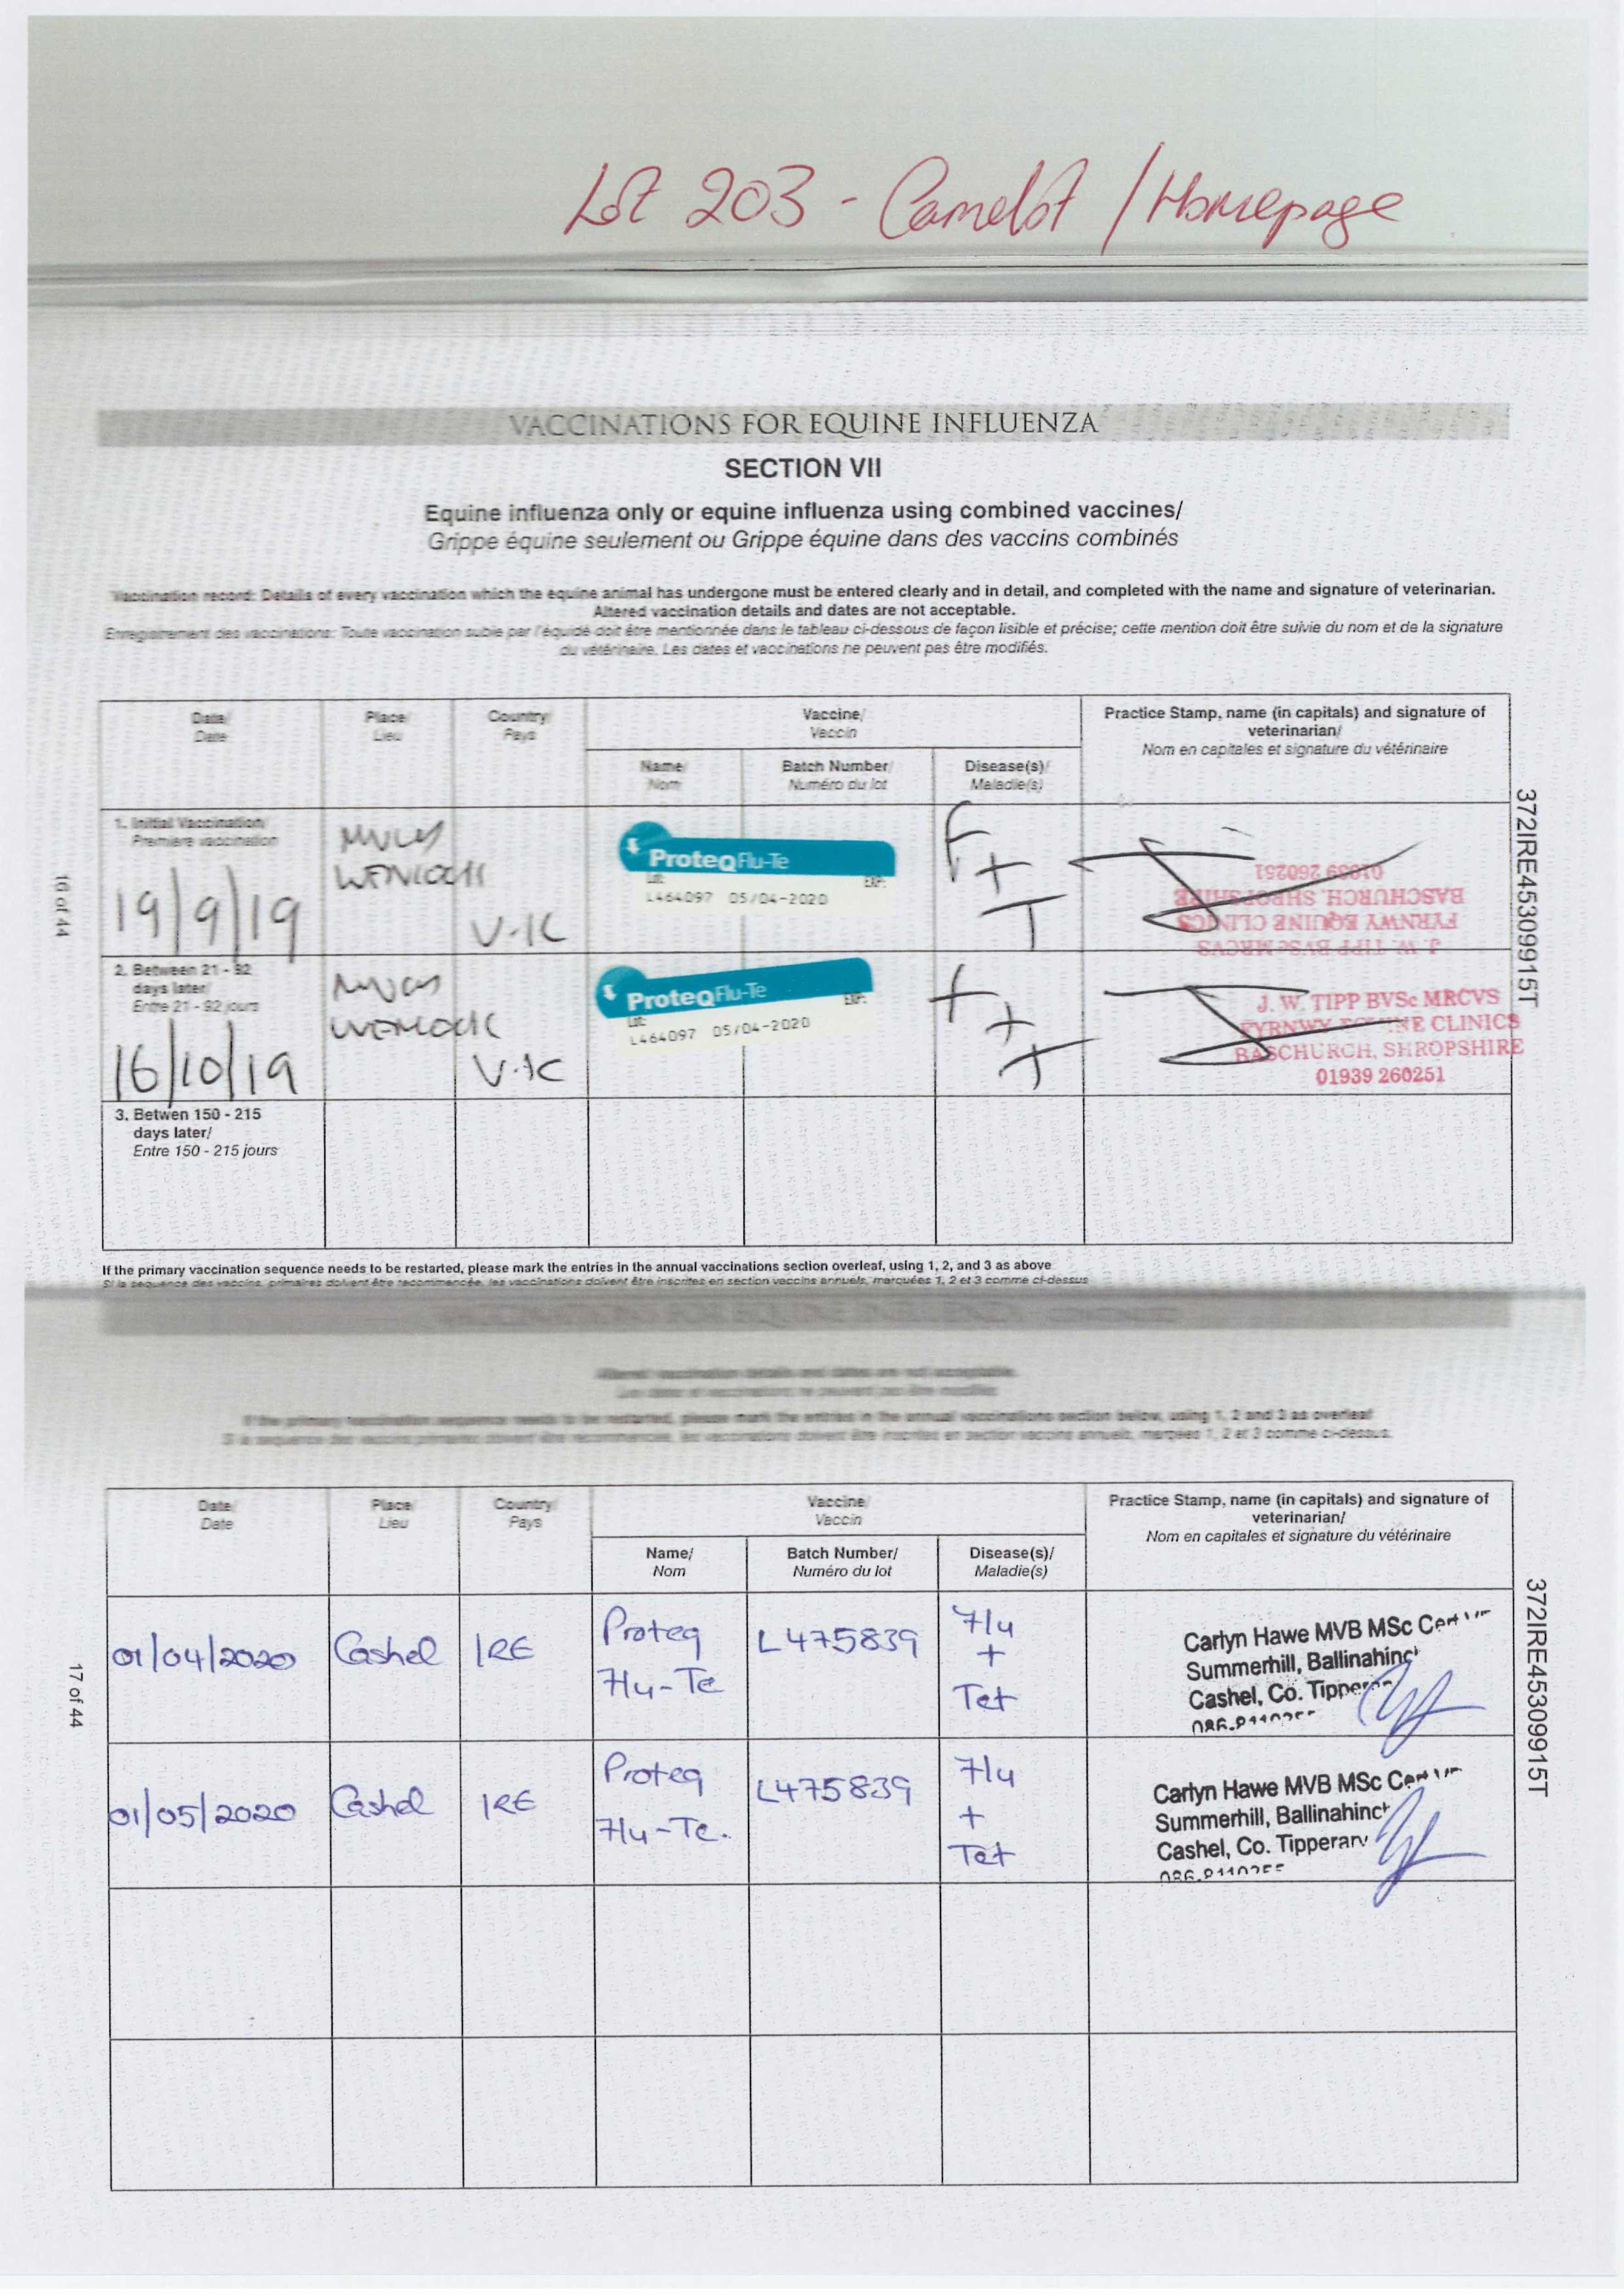 Lot 203 - Camelot / Homepage
VACCINATIONS FOR EQUINE INFLUENZA
SECTION VII
Equine influenza only or equine influenza using combined vaccines/
Grippe équine seulement ou Grippe équine dans des vaccins combinés
Vaccination record: Details of every vaccination which the equine animal has undergone must be entered clearly and in detail, and completed with the name and signature of veterinarian.
Altered vaccination details and dates are not acceptable.
Enregistrement des vaccinations: Toute vaccination subie par l'équidé doit être mentionnée dans le tableau ci-dessous de façon lisible et précise; cette mention doit être suivie du nom et de la signature
du vétérinaire. Les dates et vaccinations ne peuvent pas être modifiés.
Date/
Date
Place/
Lieu
Country/
Pays
Vaccine/
Vaccin
Practice Stamp, name (in capitals) and signature of
veterinarian/
Nom en capitales et signature du vétérinaire
Name/
Nom
Batch Number/
Numéro du lot
Disease(s)/
Maladie(s)
1. Initial Vaccination/
Première vaccination
19/9/19
WENLOCK
U.K
ProteqFlu-Te
Lot:
EXP:
L464097 05/04-2020
F
+
T
J. W. TIPP BVSc MRCVS
FYRNWY EQUINE CLINICS
BASCHURCH, SHROPSHIRE
01939 260251
2. Between 21 - 92
days later/
Entre 21 - 92 jours
16/10/19
WENLOCK
U.K
ProteqFlu-Te
Lot:
EXP:
L464097 05/04-2020
F
+
T
J. W. TIPP BVSc MRCVS
FYRNWY EQUINE CLINICS
BASCHURCH, SHROPSHIRE
01939 260251
3. Betwen 150 - 215
days later/
Entre 150 - 215 jours
If the primary vaccination sequence needs to be restarted, please mark the entries in the annual vaccinations section overleaf, using 1, 2, and 3 as above
Si la séquence des vaccins, primaires doivent être recommencée, les vaccinations doivent être inscrites en section vaccins annuels, marquées 1, 2 et 3 comme ci-dessus
16 of 44
372IRE45309915T
Altered vaccination details and dates are not acceptable.
Les dates et vaccinations ne peuvent pas être modifiés
If the primary vaccination sequence needs to be restarted, please mark the entries in the annual vaccinations section below, using 1, 2 and 3 as overleaf
Si la séquence des vaccins primaires doivent être recommencée, les vaccinations doivent être inscrites en section vaccins annuels, marquées 1, 2 et 3 comme ci-dessus.
Date/
Date
Place/
Lieu
Country/
Pays
Vaccine/
Vaccin
Practice Stamp, name (in capitals) and signature of
veterinarian/
Nom en capitales et signature du vétérinaire
Name/
Nom
Batch Number/
Numéro du lot
Disease(s)/
Maladie(s)
01/04/2020
Cashel
IRE
Proteq
Flu-Te
L475839
Flu
+
Tet
Carlyn Hawe MVB MSc Cert
Summerhill, Ballinahinc
Cashel, Co. Tipperar
01/05/2020
Cashel
IRE
Proteq
Flu-Te.
L475839
Flu
+
Tet
Carlyn Hawe MVB MSc Cert
Summerhill, Ballinahinc
Cashel, Co. Tipperary
17 of 44
372IRE45309915T